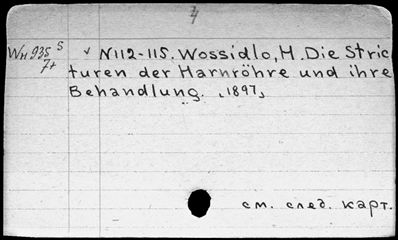 Wн 935 S
7+
√ N112-115. Wossidlo, H. Die Stric
turen der Harnröhre und ihre
Behandlung. 1897
см. след. карт.